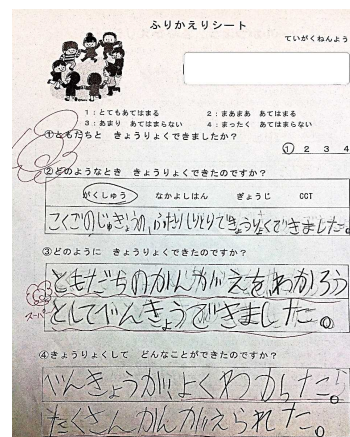 ふりかえりシート
ていがくねんよう
1：とてもあてはまる　2：まあまあ　あてはまる
3：あまり　あてはまらない　4：まったく　あてはまらない
①ともだちと　きょうりょくできましたか？
① 2 3 4
②どのようなとき　きょうりょくできたのですか？
がくしゅう　なかよしはん　ぎょうじ　CCT
こくごのじゅぎょうの、ふたりしりとりできょうりょくできました。
③どのように　きょうりょくできたのですか？
ともだちのかんがえを、わかろう
としてべんきょうできました。
スーパー
④きょうりょくして　どんなことができたのですか？
べんきょうがよくわかったら
たくさんかんがえられた。